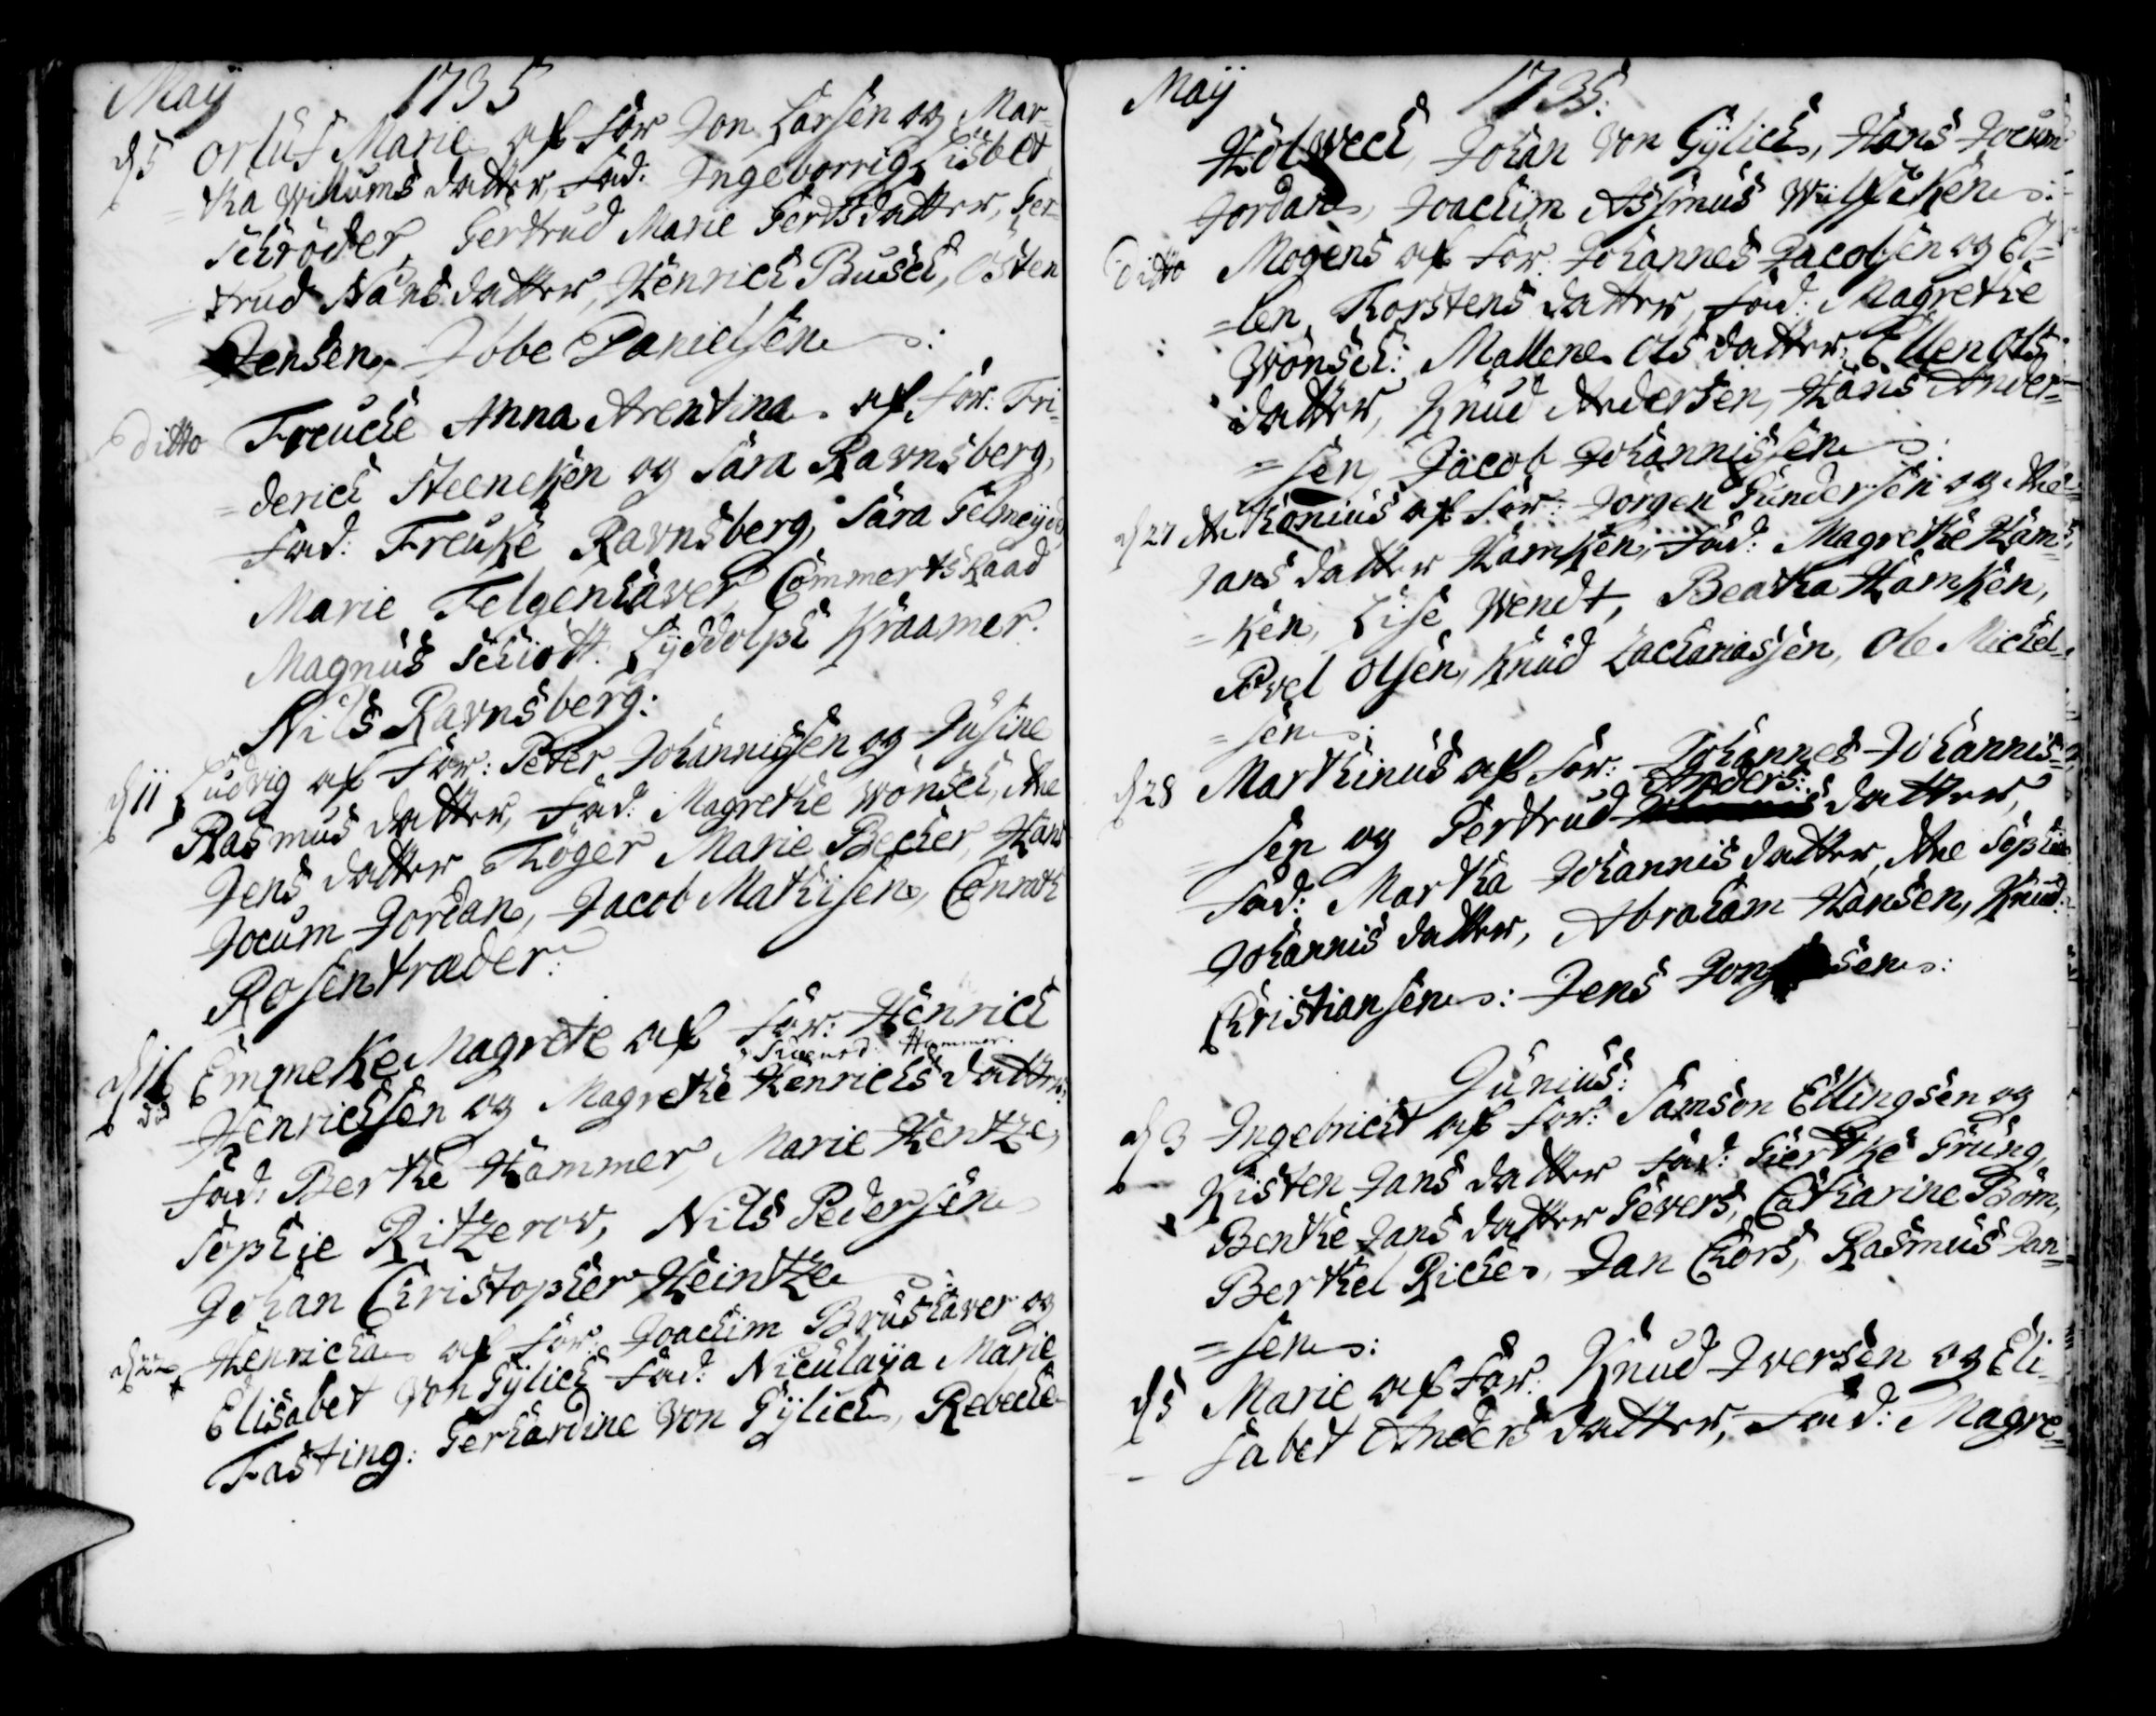 Maÿ 1735
d 5 Orluf Marie af For Jon Larsen og Mar-
=tha Willums datter, Fad: Ingeborrig Lisbet
Schröder, Gertrud Marie Gertsdatter, Ger-
=trud Hans datter, Henrich Busch, Osten
Jensen, Jobe Danielsen:
Ditto Freuche Anna Arentina af For: Fri-
=derich Steeneken og Sara Ravnsberg,
Fad: Freuke Ravnsberg, Sara
Marie Felgenhaver Commertsraad
Magnus Schiött. Lÿddolph Kraamer.
Nils Ravnsberg:
d 11 Ludvig af For: Peter Johannissen og Susine
Rasmus datter, Fad: Magrethe Wönsch, Ane
Jens datter Kröger Marie Becher, Hans
Jocum Jordan, Jacob Mathisen, Conrath
Rosentræder:
d 16 Emmeke Magrete af For: Henrich
Hammer
Henrichsen og Magrethe Henrichs datter:
Fad: Berthe Hammer, Marie Hentze,
Sophie Ritzerow, Nils Pedersen
Johan Christopher Heintze
d 22 Henricha af For: Joachim Brushaver og
Elisabet von Gÿlich Fad: Niculaÿa Marie
Fasting: Gerhardine von Gÿlich, Rebeche
Maÿ 1735:
Holweck, Johan von Gÿlich, Hans Jocum
Jordan, Joachim Assmus Wülfeken:
Ditto Mogens af For: Johannes Jacobsen og El-
=len Torstens datter, Fad: Magrethe
Wönsch: Mallene Ols datter, Ellen Ols
datter, Knud Andersen, Hans Ander-
=sen, Jacob Johannissen:
d 27 Anthonius af For: Jörgen Gundersen og Ane
Jans datter Hamken, Fad: Magrethe Ham-
=ken, Lise Wendt, Beatha Hamken,
Povel Olsen, Knud Zachariassen, Ole Michel-
=sen:
d 28 Marthinus af For: Johannes Johannis-
Anders:
sen og Gertrud datter,
Fad: Martha Johannis datter, Ane Sophie
Johannis datter, Abraham Hansen, Knud:
Christiansen: Jens sen:
Junius:
d 3 Ingebricht af For: Samson Ellingsen og
Kisten Jans datter Fad: Giertke Grüng,
Benthe Jans datter Gevers, Catharine Bom,
Berthel Riches, Jan Chors, Rasmus Jan-
=sen:
d 5 Marie af For: Knud Iversen og Eli-
sabet Anders datter, Fad: Magre-